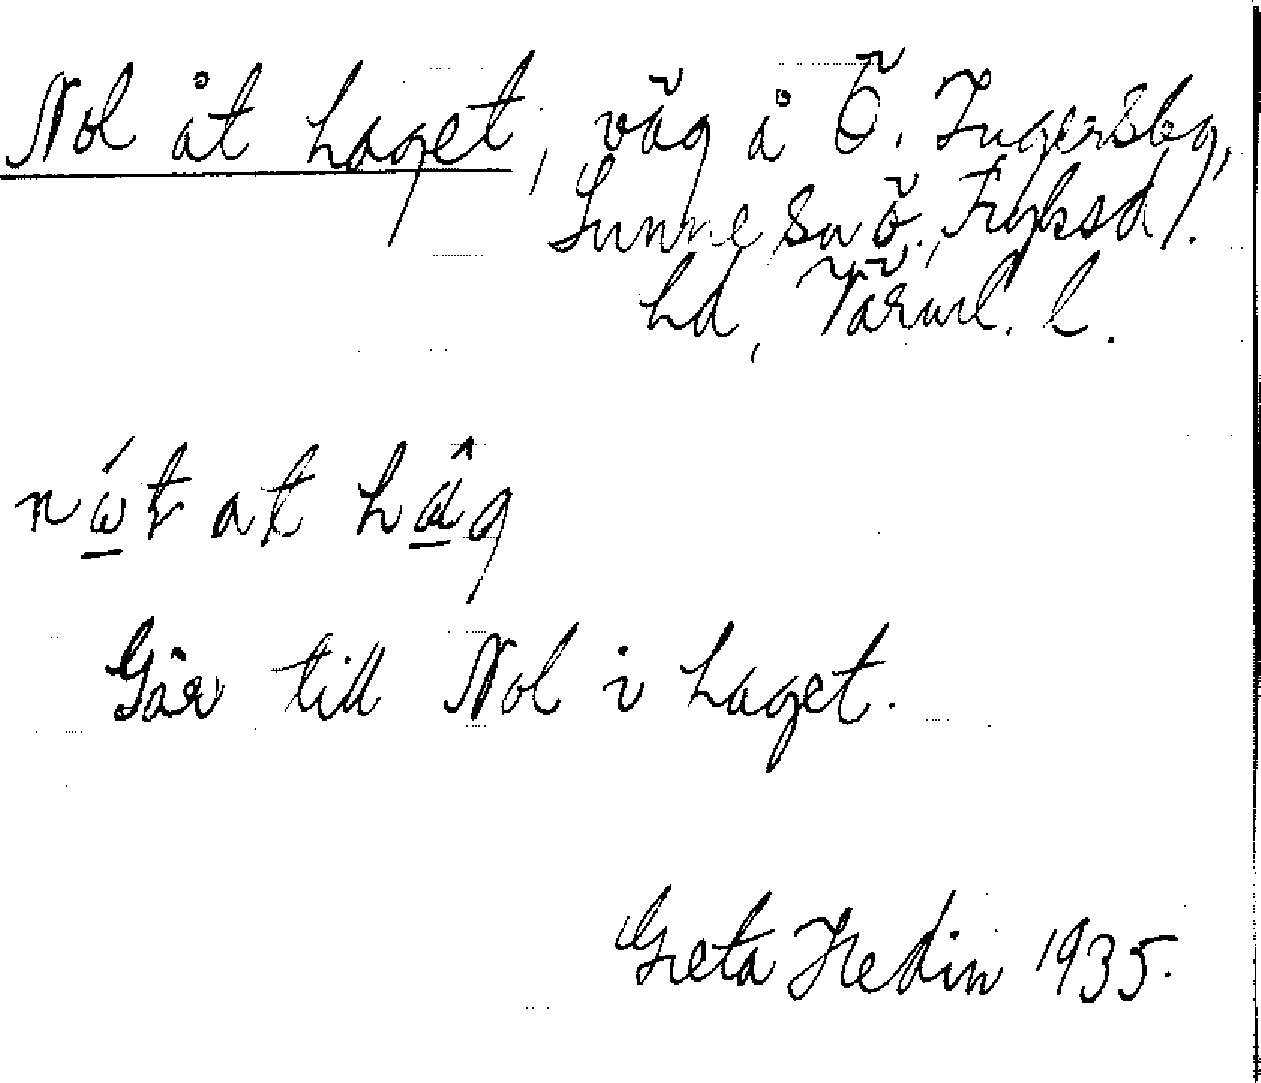 Nol åt haget, väg å Ö. Ingersbg,
Sunne sn ö., Fryksd.
hd, Värml. l.
nót at hâg
Går till Nol i haget.
Greta Hedin 1935.